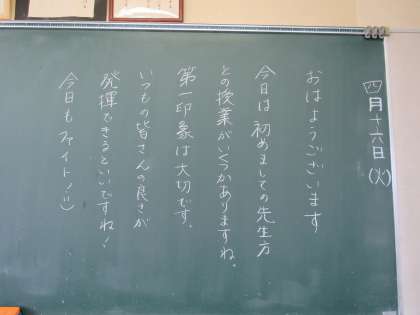 四月十六日(火)
おはようございます
今日は初めましての先生方
との授業がいくつかありますね。
第一印象は大切です。
いつもの皆さんの良さが
発揮できるといいですね!
今日もファイト!!